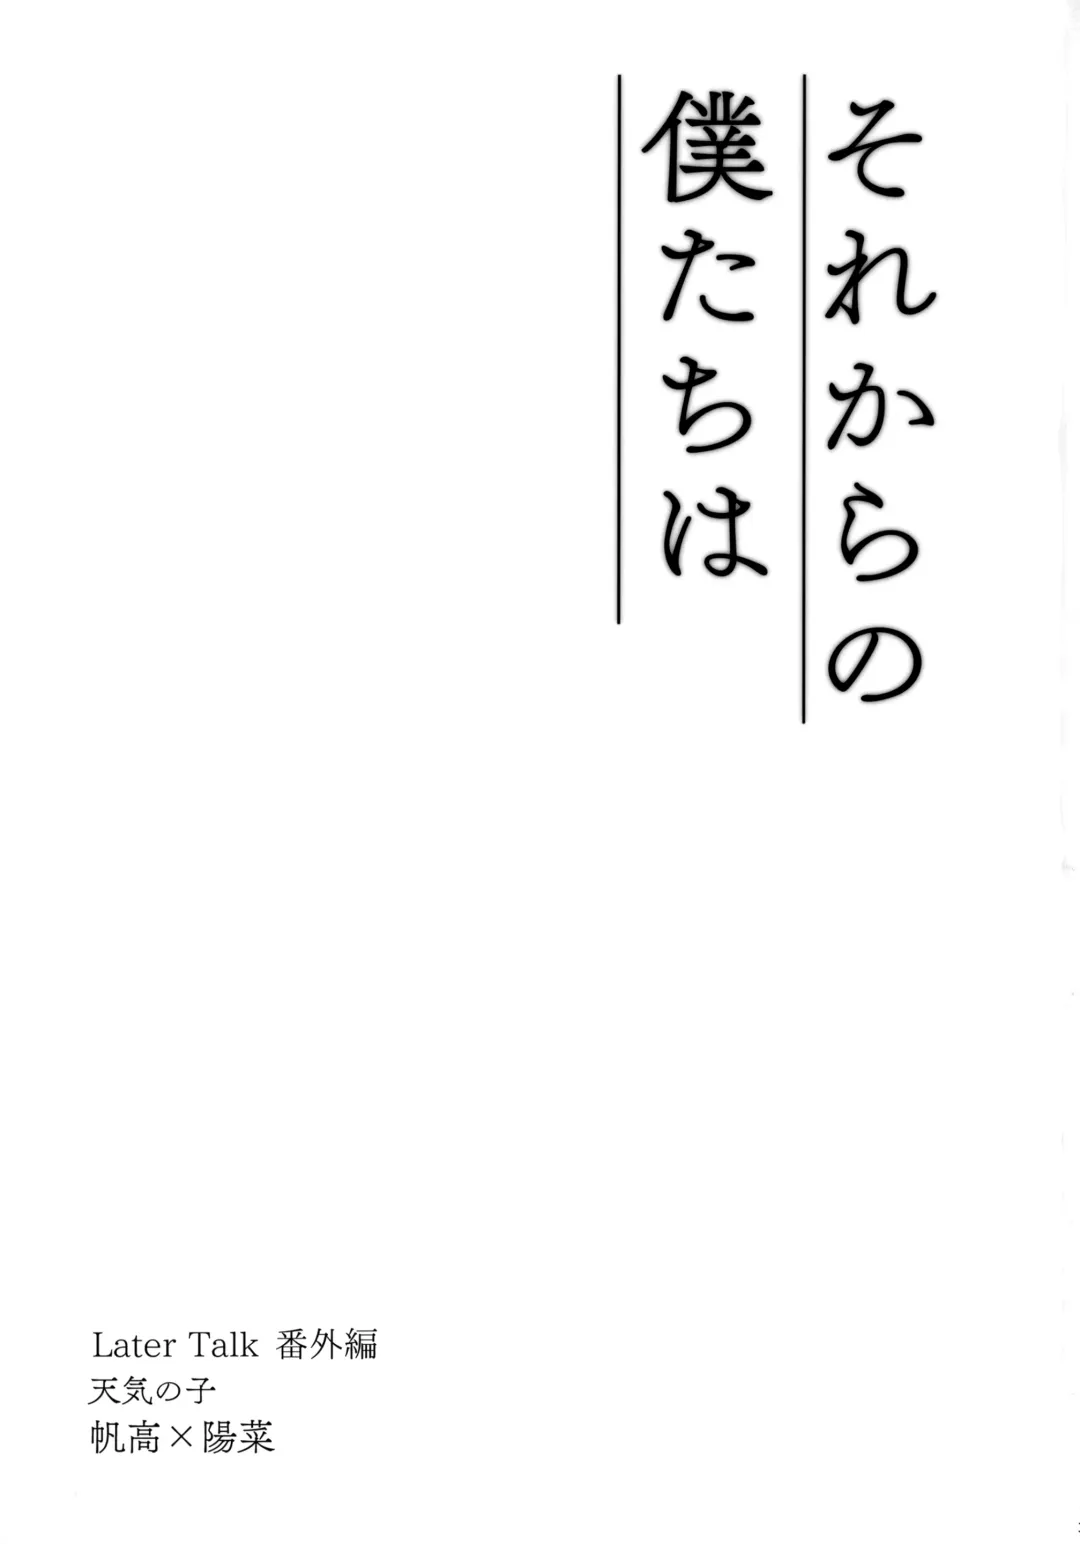 それからの
僕たちは
Later Talk 番外編
天気の子
帆高×陽菜